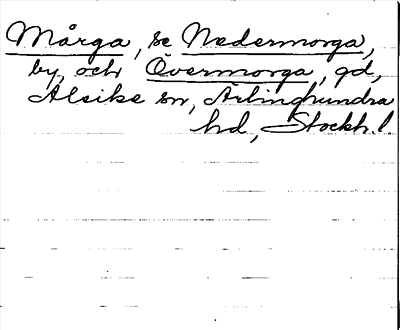 Mårga, se Nedermorga,
by, och Övermorga, gd,
Alsike sn, Ärlinghundra
hd, Stockh. l